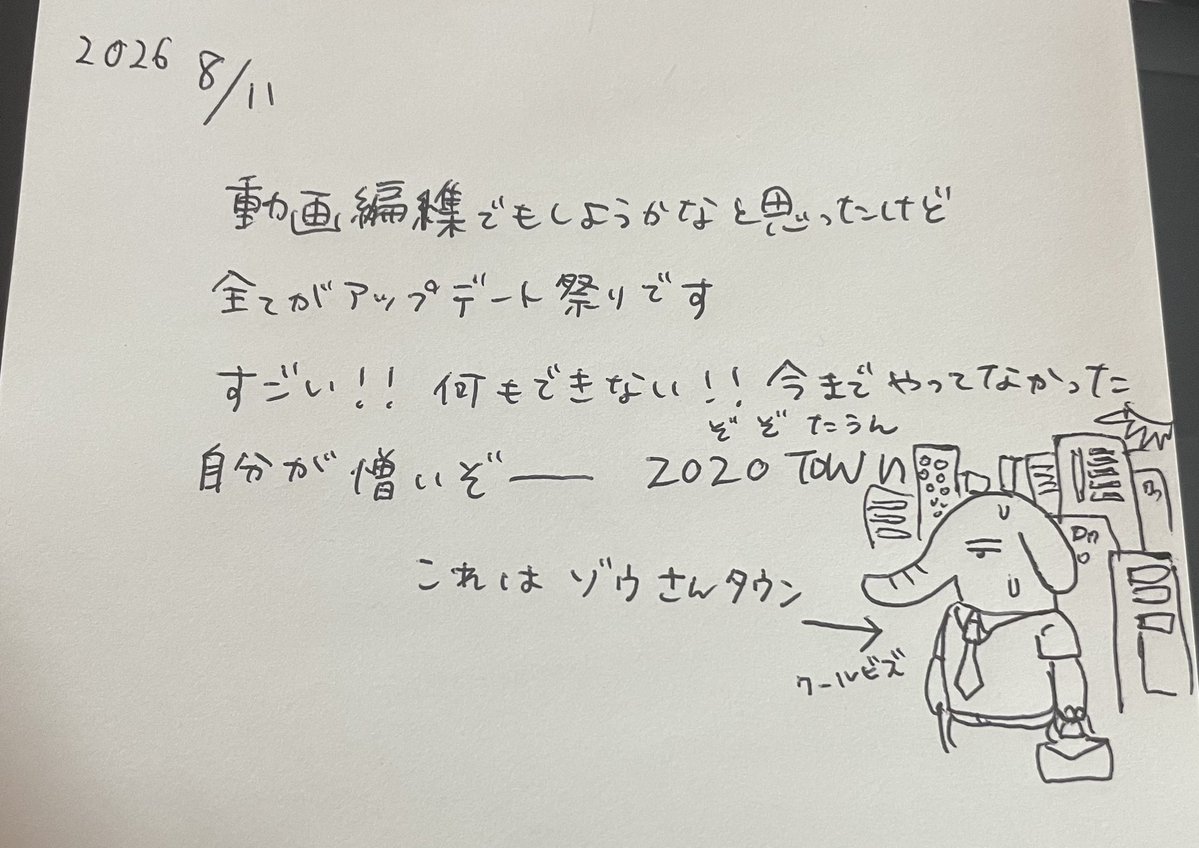 2026 8/11
動画編集でもしようかなと思ったけど
全てがアップデート祭りです
すごい!! 何もできない!! 今までやってなかった
自分が憎いぞー
ぞぞたうん
2020 TOWN
これはゾウさんタウン
クールビズ